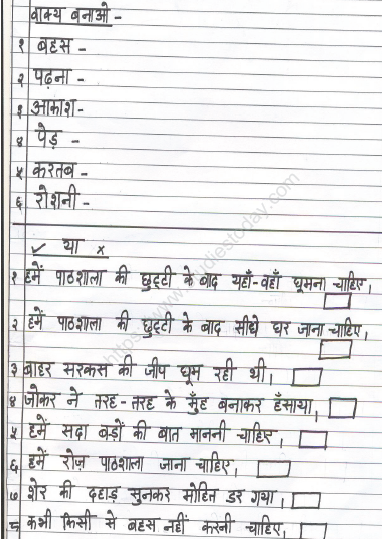 वाक्य बनाओ -
१ बहस -
२ पढ़ना -
३ आकाश -
४ पेड़ -
५ करतब -
६ रोशनी -
✓ या x
१ हमें पाठशाला की छुट्टी के बाद यहाँ-वहाँ घूमना चाहिए।
२ हमें पाठशाला की छुट्टी के बाद सीधे घर जाना चाहिए।
३ बाहर सरकस की जीप घूम रही थी।
४ जोकर ने तरह-तरह के मुँह बनाकर हँसाया।
५ हमें सदा बड़ों की बात माननी चाहिए।
६ हमें रोज़ पाठशाला जाना चाहिए।
७ शेर की दहाड़ सुनकर मोहित डर गया।
८ कभी किसी से बहस नहीं करनी चाहिए।
https://www.studiestoday.com